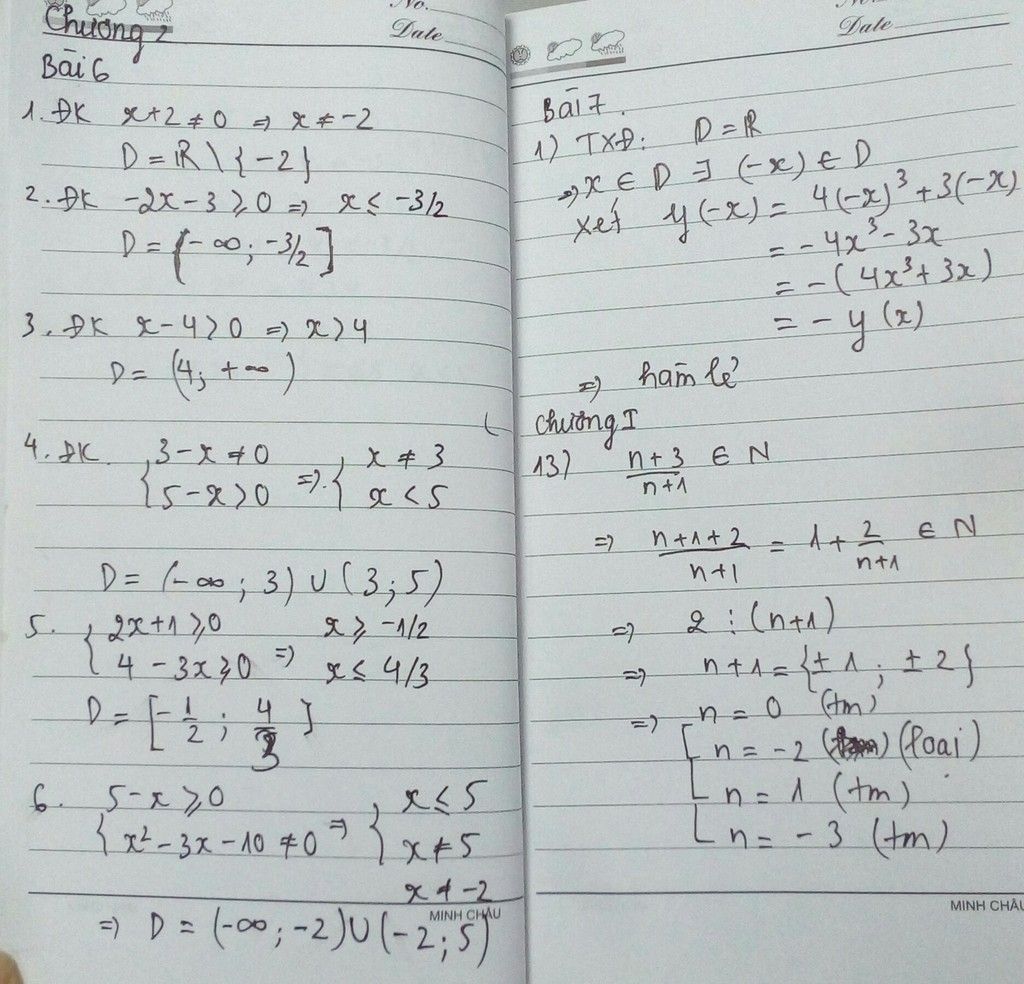 Chương 2
Date
Bài 6
1. ĐK x+2 ≠ 0 ⇒ x ≠ -2
D = ℝ \ {-2}
2. ĐK -2x - 3 ⩾ 0 ⇒ x ≤ -3/2
D = (-∞; -3/2]
3. ĐK x - 4 > 0 ⇒ x > 4
D = (4; +∞)
4. ĐK { 3 - x ≠ 0 ⇒ { x ≠ 3
{ 5 - x > 0 { x < 5
D = (-∞; 3) ∪ (3; 5)
5. { 2x + 1 ⩾ 0 ⇒ x ⩾ -1/2
{ 4 - 3x ⩾ 0 x ≤ 4/3
D = [-1/2; 4/3]
6. { 5 - x ⩾ 0 ⇒ { x ≤ 5
{ x² - 3x - 10 ≠ 0 { x ≠ 5
x ≠ -2
⇒ D = (-∞; -2) ∪ (-2; 5)
MINH CHÂU
No.
Date
Bài 7.
1) TXĐ: D = ℝ
⇒ x ∈ D ∃ (-x) ∈ D
Xét y(-x) = 4(-x)³ + 3(-x)
= -4x³ - 3x
= -(4x³ + 3x)
= -y(x)
⇒ hàm lẻ
Chương I
13) (n+3)/(n+1) ∈ N
⇒ (n+1+2)/(n+1) = 1 + 2/(n+1) ∈ N
⇒ 2 ⋮ (n+1)
⇒ n+1 = {±1; ±2}
⇒ [ n = 0 (tm)
n = -2 (loại)
n = 1 (tm)
n = -3 (tm)
MINH CHÂU